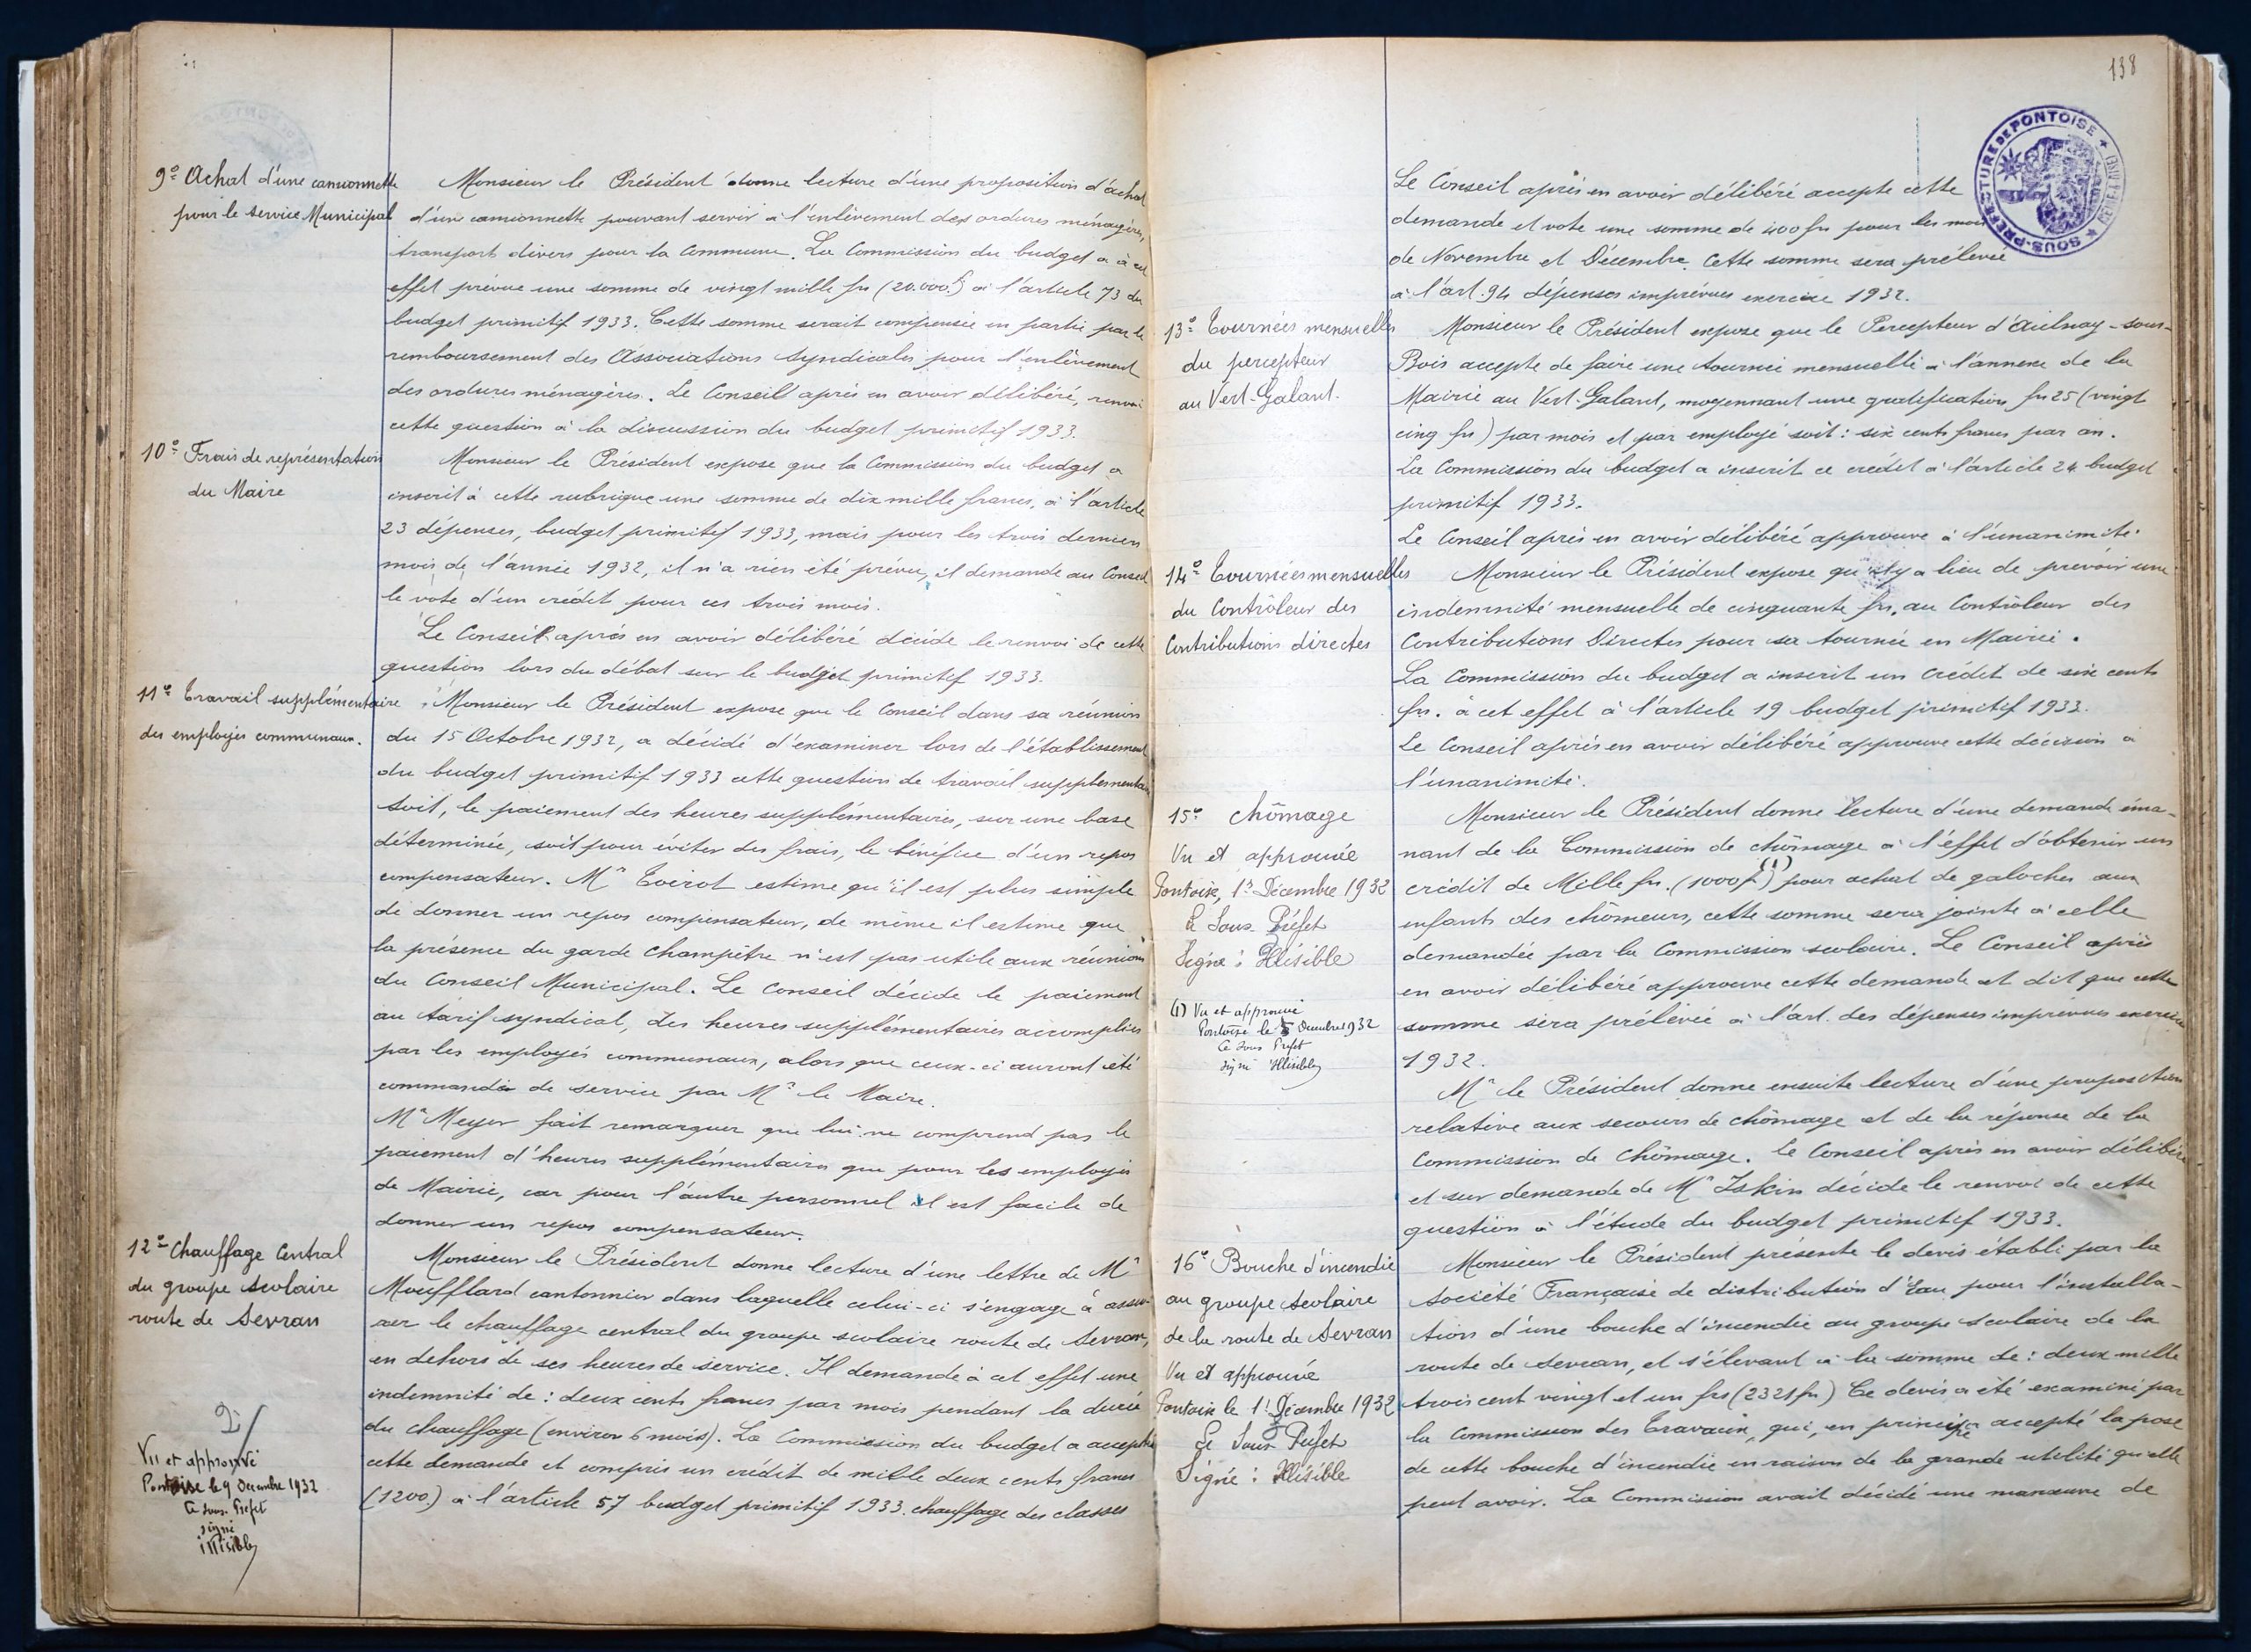 9º Achat d'une camionnette
pour le Service Municipal
Monsieur le Président donne lecture d'une proposition d'achat
d'une camionnette pouvant servir à l'enlèvement des ordures ménagères,
transports divers pour la Commune. La Commission du budget a à cet
effet prévue une somme de vingt mille frs (20.000 f) à l'article 73 du
budget primitif 1933. Cette somme serait compensée en partie par le
remboursement des Associations Syndicales pour l'enlèvement
des ordures ménagères. Le Conseil après en avoir délibéré, renvoi
cette question à la discussion du budget primitif 1933.
10º Frais de représentation
du Maire
Monsieur le Président expose que la Commission du budget a
inscrit à cette rubrique une somme de dix mille francs, à l'article
23 dépenses, budget primitif 1933, mais pour les trois derniers
mois de l'année 1932, il n'a rien été prévu, il demande au Conseil
le vote d'un crédit pour ces trois mois.
Le Conseil après en avoir délibéré décide le renvoi de cette
question lors du débat sur le budget primitif 1933.
11º Travail supplémentaire
des employés communaux.
Monsieur le Président expose que le Conseil dans sa réunion
du 15 Octobre 1932, a décidé d'examiner lors de l'établissement
du budget primitif 1933 cette question de travail supplémentaire
soit, le paiement des heures supplémentaires, sur une base
déterminée, soit pour éviter des frais, le bénéfice d'un repos
compensateur. Mr Toirot estime qu'il est plus simple
de donner un repos compensateur, de même il estime que
la présence du garde champêtre n'est pas utile aux réunions
du Conseil Municipal. Le Conseil décide le paiement
au tarif syndical, des heures supplémentaires accomplies
par les employés communaux, alors que ceux-ci auront été
commandés de service par Mr le Maire.
Mr Meyer fait remarquer que lui ne comprend pas le
paiement d'heures supplémentaires que pour les employés
de Mairie, car pour l'autre personnel il est facile de
donner un repos compensateur.
12º Chauffage Central
du groupe scolaire
route de Sevran
Monsieur le Président donne lecture d'une lettre de Mr
Moufflard cantonnier dans laquelle celui-ci s'engage à assu-
rer le chauffage central du groupe scolaire route de Sevran,
en dehors de ses heures de service. Il demande à cet effet une
indemnité de : deux cents francs par mois pendant la durée
du chauffage (environ 6 mois). La Commission du budget a accepté
cette demande et compris un crédit de mille deux cents francs
(1200.) à l'article 57 budget primitif 1933. chauffage des classes
Vu et approuvé
Pontoise le 9 Decembre 1932
Le Sous Prefet
signé
illisible
138
SOUS-PRÉFECTURE DE PONTOISE
Le Conseil après en avoir délibéré accepte cette
demande et vote une somme de 400 frs pour les mois
de Novembre et Décembre. Cette somme sera prélevée
à l'art. 94 dépenses imprévues exercice 1932.
13º Tournées mensuelles
du percepteur
au Vert-Galant.
Monsieur le Président expose que le Percepteur d'Aulnay-sous-
Bois accepte de faire une tournée mensuelle à l'annexe de la
Mairie au Vert-Galant, moyennant une gratification frs 25 (vingt
cinq frs) par mois et par employé soit : six cents francs par an.
La Commission du budget a inscrit ce crédit à l'article 24 budget
primitif 1933.
Le Conseil après en avoir délibéré approuve à l'unanimité.
14º Tournées mensuelles
du Contrôleur des
Contributions directes
Monsieur le Président expose qu'il y a lieu de prévoir une
indemnité mensuelle de cinquante frs, au Contrôleur des
Contributions Directes pour sa tournée en Mairie.
La Commission du budget a inscrit un crédit de six cents
frs. à cet effet à l'article 19 budget primitif 1933.
Le Conseil après en avoir délibéré approuve cette décision à
l'unanimité.
15º Chômage
Vu et approuvée
Pontoise, 1er Décembre 1932
Le Sous Préfet
Signé : Illisible
(1) Vu et approuvé
Pontoise le 5 Decembre 1932
Le Sous Prefet
signé Illisible
Monsieur le Président donne lecture d'une demande éma-
nant de la Commission de chômage à l'effet d'obtenir un
crédit de Mille frs. (1000 f) (1) pour achat de galoches aux
enfants des chômeurs, cette somme sera jointe à celle
demandée par la Commission scolaire. Le Conseil après
en avoir délibéré approuve cette demande et dit que cette
somme sera prélevée à l'art. des dépenses imprévues exercice
1932.
Mr le Président donne ensuite lecture d'une proposition
relative aux secours de chômage et de la réponse de la
Commission de Chômage. Le Conseil après en avoir délibéré
et sur demande de Mr Iskin décide le renvoi de cette
question à l'étude du budget primitif 1933.
16º Bouche d'incendie
au groupe scolaire
de la route de Sevran
Vu et approuvée
Pontoise le 1er Décembre 1932
Le Sous Préfet
Signé : Illisible
Monsieur le Président présente le devis établi par la
Société Française de distribution d'Eau pour l'installa-
tion d'une bouche d'incendie au groupe scolaire de la
route de Sevran, et s'élevant à la somme de : deux mille
trois cent vingt et un frs (2321 frs) Ce devis a été examiné par
la Commission des Travaux, qui, en principe accepté la pose
de cette bouche d'incendie en raison de la grande utilité qu'elle
peut avoir. La Commission avait décidé une manœuvre de